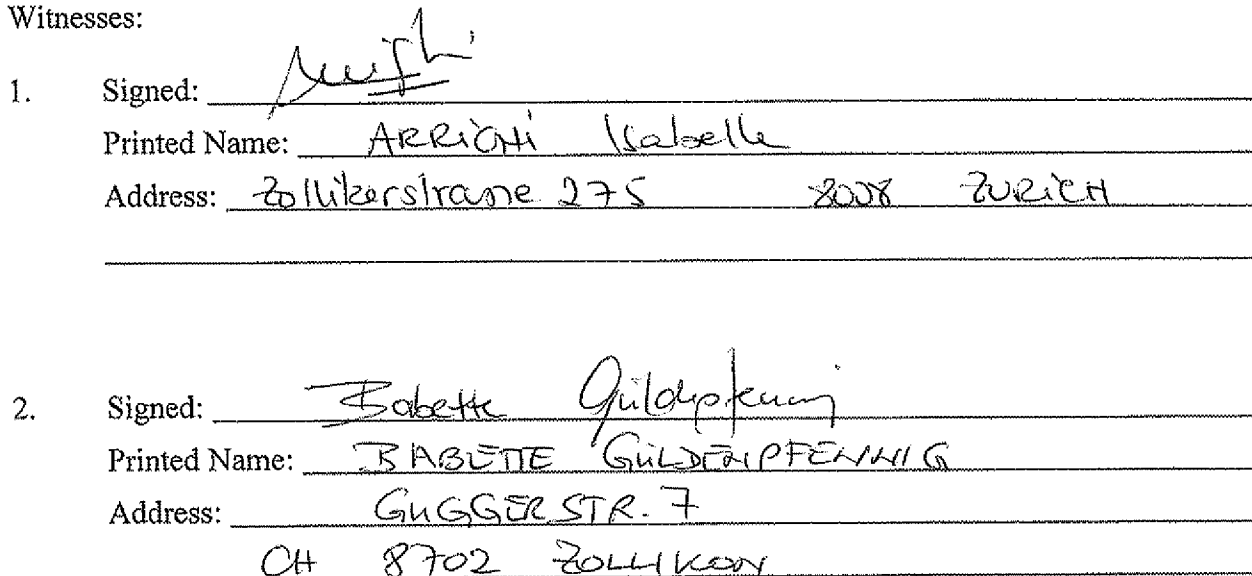 Witnesses:
1. Signed: Arrighi
Printed Name: ARRiGHi Isabelle
Address: Zollikerstrasse 275 8008 ZURiCH
2. Signed: Babette Güldenpfennig
Printed Name: BABETTE GÜLDENPFENNIG
Address: GUGGERSTR. 7
CH 8702 ZOLLIKON